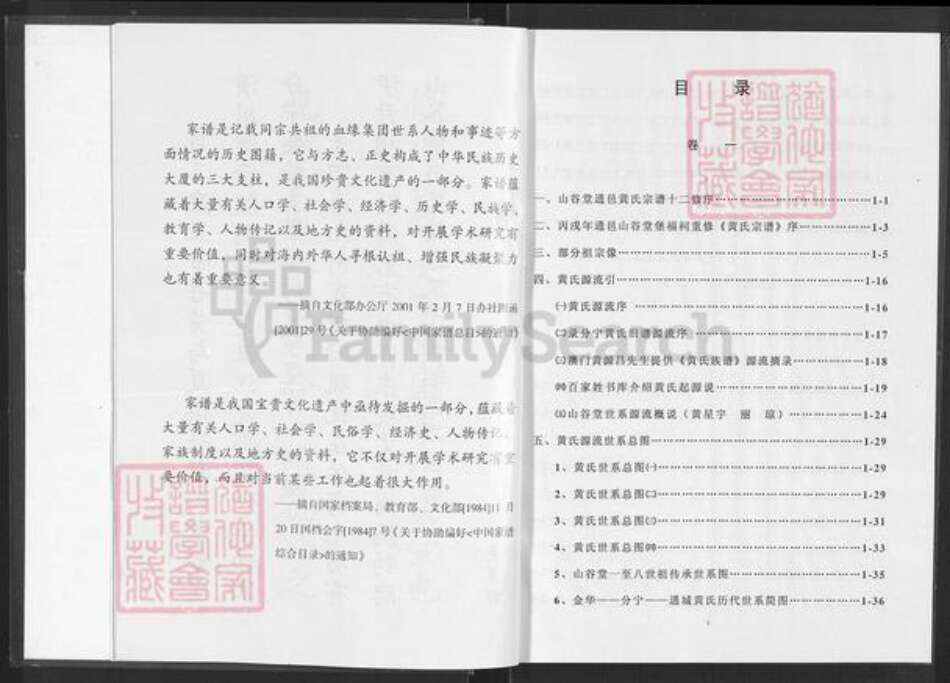 家谱是记载同宗共祖的血缘集团世系人物和事迹等方
面情况的历史图籍，它与方志、正史构成了中华民族历史
大厦的三大支柱，是我国珍贵文化遗产的一部分。家谱蕴
藏着大量有关人口学、社会学、经济学、历史学、民族学、
教育学、人物传记以及地方史的资料，对开展学术研究有
重要价值，同时对海内外华人寻根认祖、增强民族凝聚力
也有着重要意义。
——摘自文化部办公厅 2001 年 2 月 7 日办社图函
[2001]29 号《关于协助编好<中国家谱总目>的通知》
家谱是我国宝贵文化遗产中亟待发掘的一部分，蕴藏着
大量有关人口学、社会学、民俗学、经济史、人物传记、
家族制度以及地方史的资料，它不仅对开展学术研究有重
要价值，而且对当前某些工作也起着很大作用。
——摘自国家档案局、教育部、文化部[1984]11 月
20 日国档会字[1984]7 号《关于协助编好<中国家谱
综合目录>的通知》
目 录
卷 一
一、山谷堂通邑黄氏宗谱十二修序……………………1-1
二、丙戌年通邑山谷堂堡福祠重修《黄氏宗谱》序……………1-3
三、部分祖宗像……………………………………1-5
四、黄氏源流引……………………………………1-16
㈠黄氏源流序……………………………………1-16
㈡录分宁黄氏旧谱源流序……………………………1-17
㈢澳门黄源昌先生提供《黄氏族谱》源流摘录……………1-18
㈣百家姓书库介绍黄氏起源说……………………………1-19
㈤山谷堂世系源流概说（黄星宇 丽 琼）……………1-24
五、黄氏源流世系总图……………………………………1-29
1、黄氏世系总图㈠……………………………………1-29
2、黄氏世系总图㈡……………………………………1-29
3、黄氏世系总图㈢……………………………………1-31
4、黄氏世系总图㈣……………………………………1-33
5、山谷堂一至八世祖传承世系图……………………1-35
6、金华——分宁——通城黄氏历代世系简图……………1-36
FamilySearch